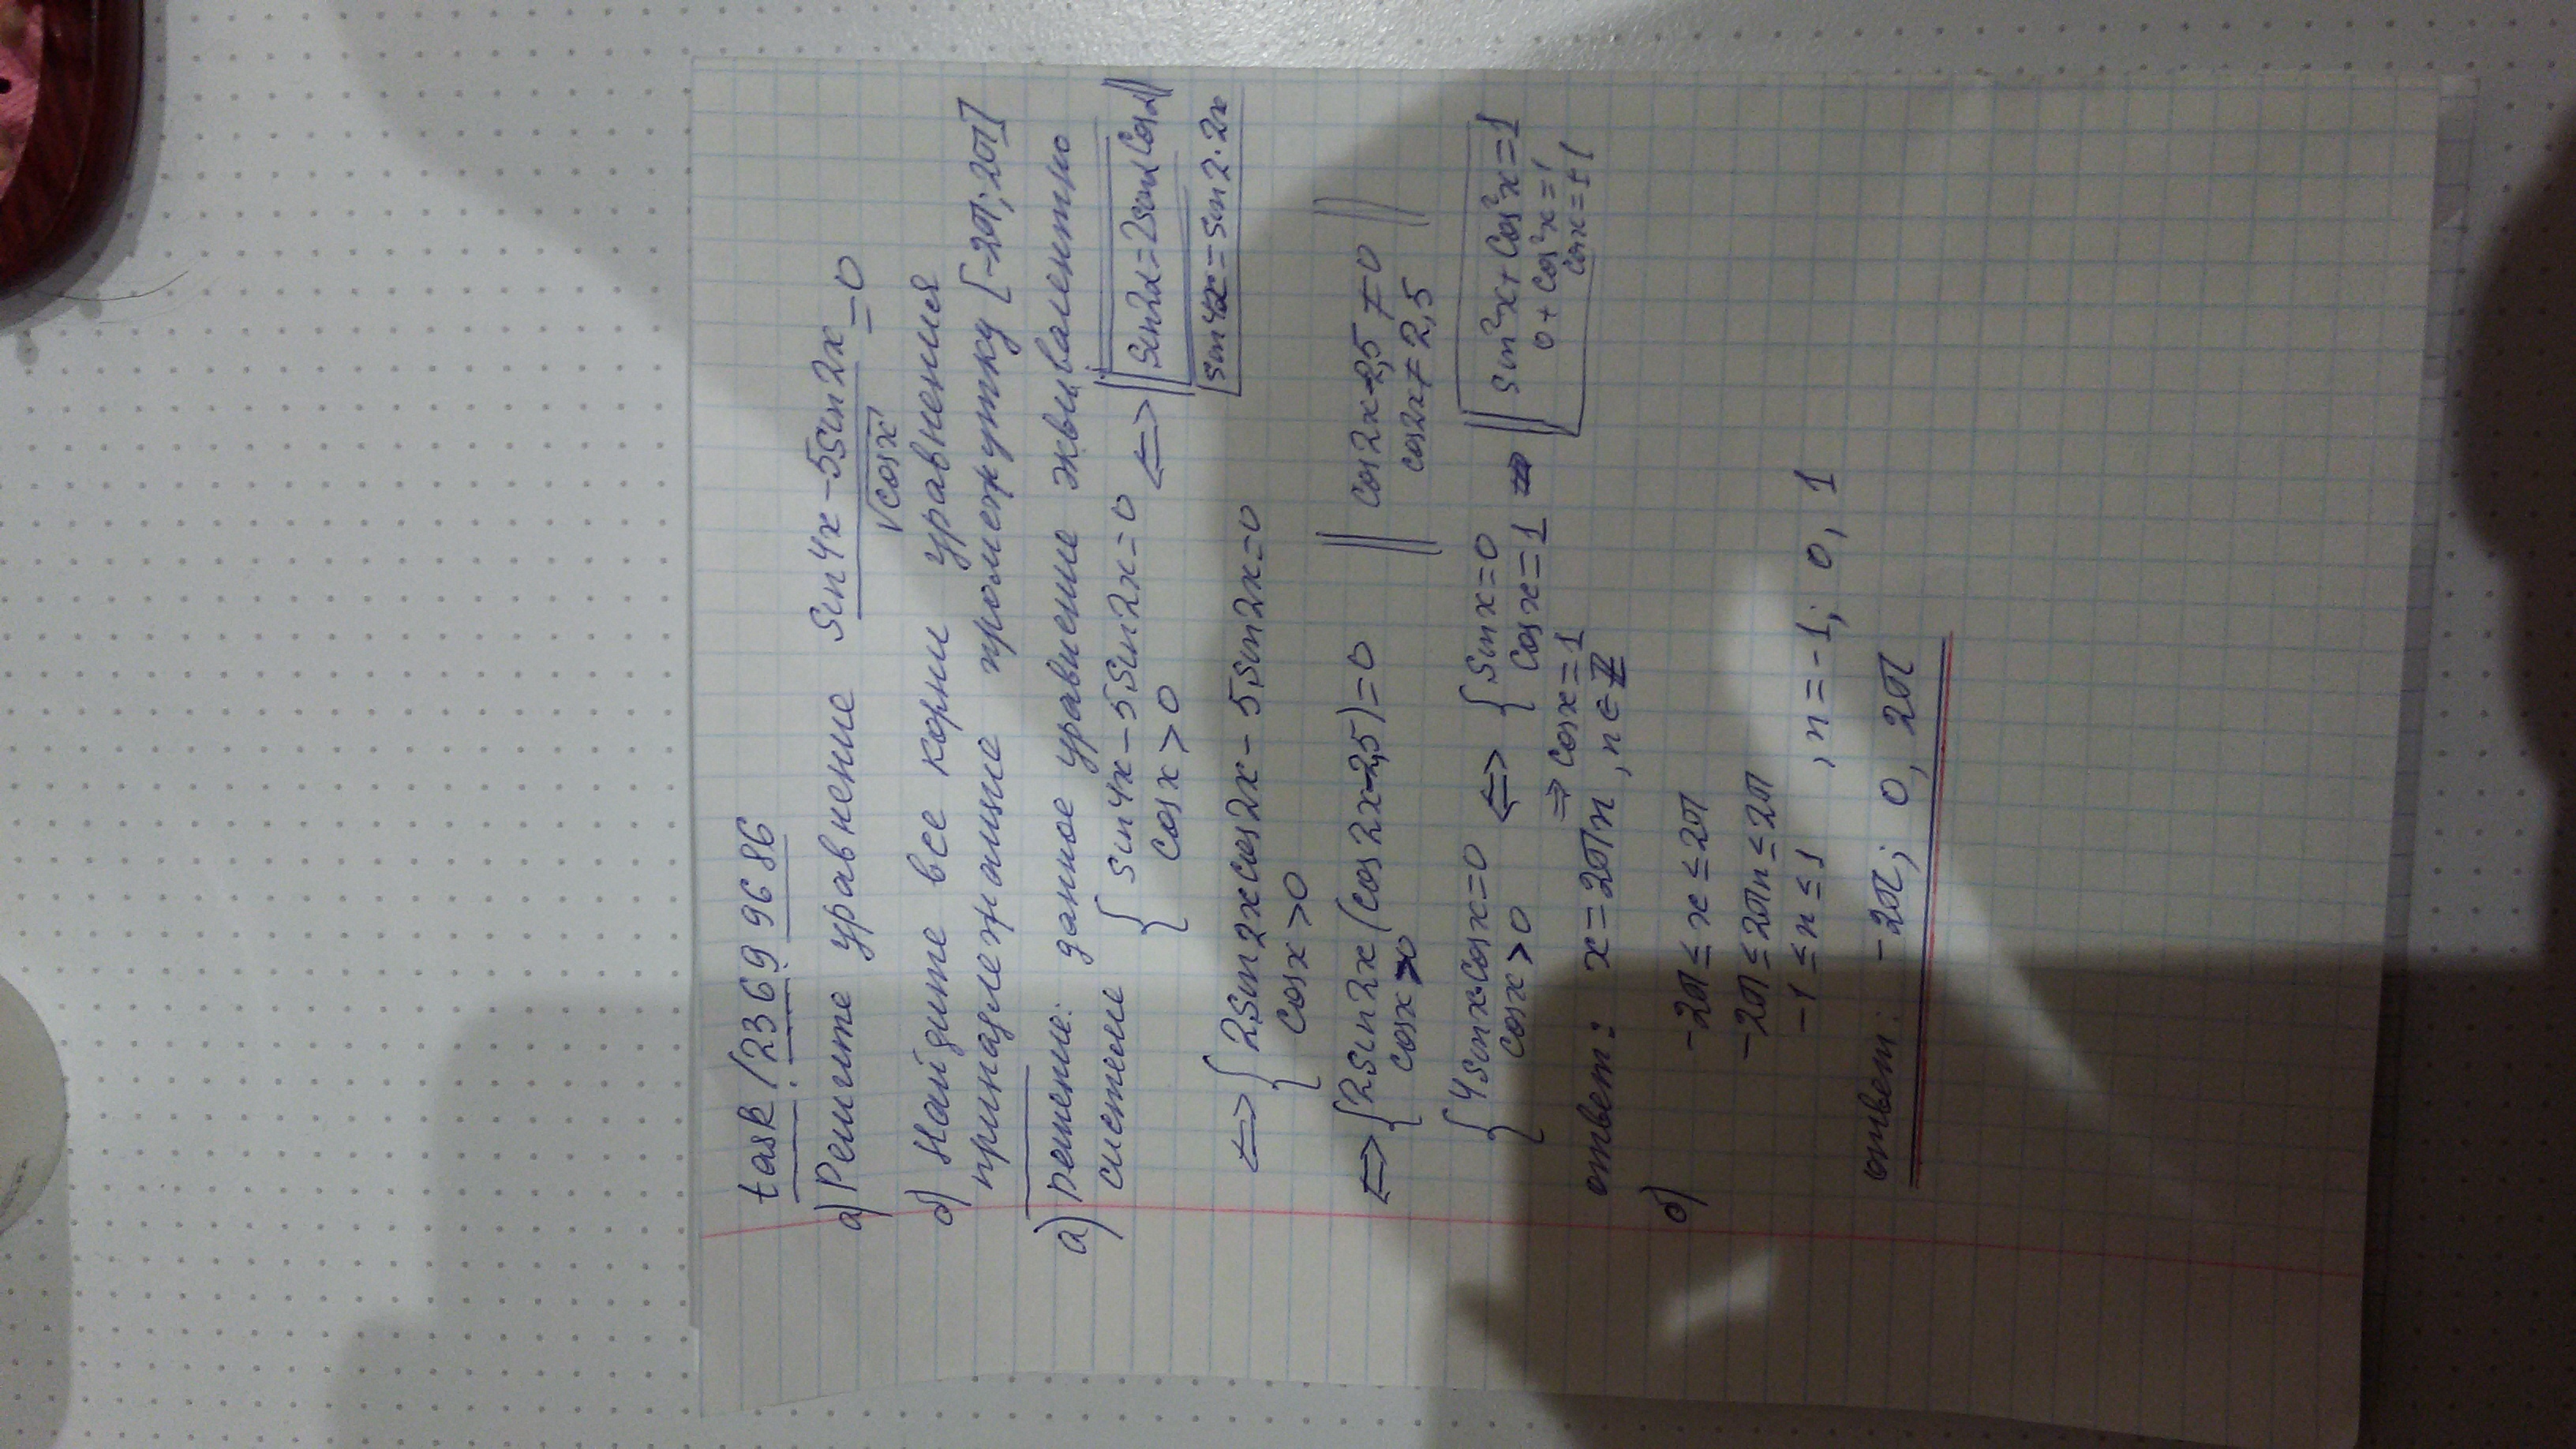 task/23699686
а) Решите уравнение (sin4x-5sin2x)/√cosx = 0
б) Найдите все корни уравнения
принадлежащие промежутку [-2π; 2π]
а) решение: данное уравнение эквивалентно
системе { sin4x-5sin2x=0 <=> || sin2x=2sinx cosx ||
cosx>0 sin4x=sin2·2x
<=> { 2sin2xcos2x-5sin2x=0
cosx>0
<=> { 2sin2x(cos2x-2,5)=0 || cos2x-2,5≠0 ||
cosx>0 cos2x≠2,5
{ 4sinx·cosx=0 <=> { sinx=0 || sin²x+cos²x=1
cosx>0 cosx=1 0+cos²x=1
=> cosx=1 cosx=±1
ответ: x=2πn, n∈Z
б) -2π≤x≤2π
-2π≤2πn≤2π
-1≤n≤1, n=-1; 0, 1
ответ: -2π; 0, 2π